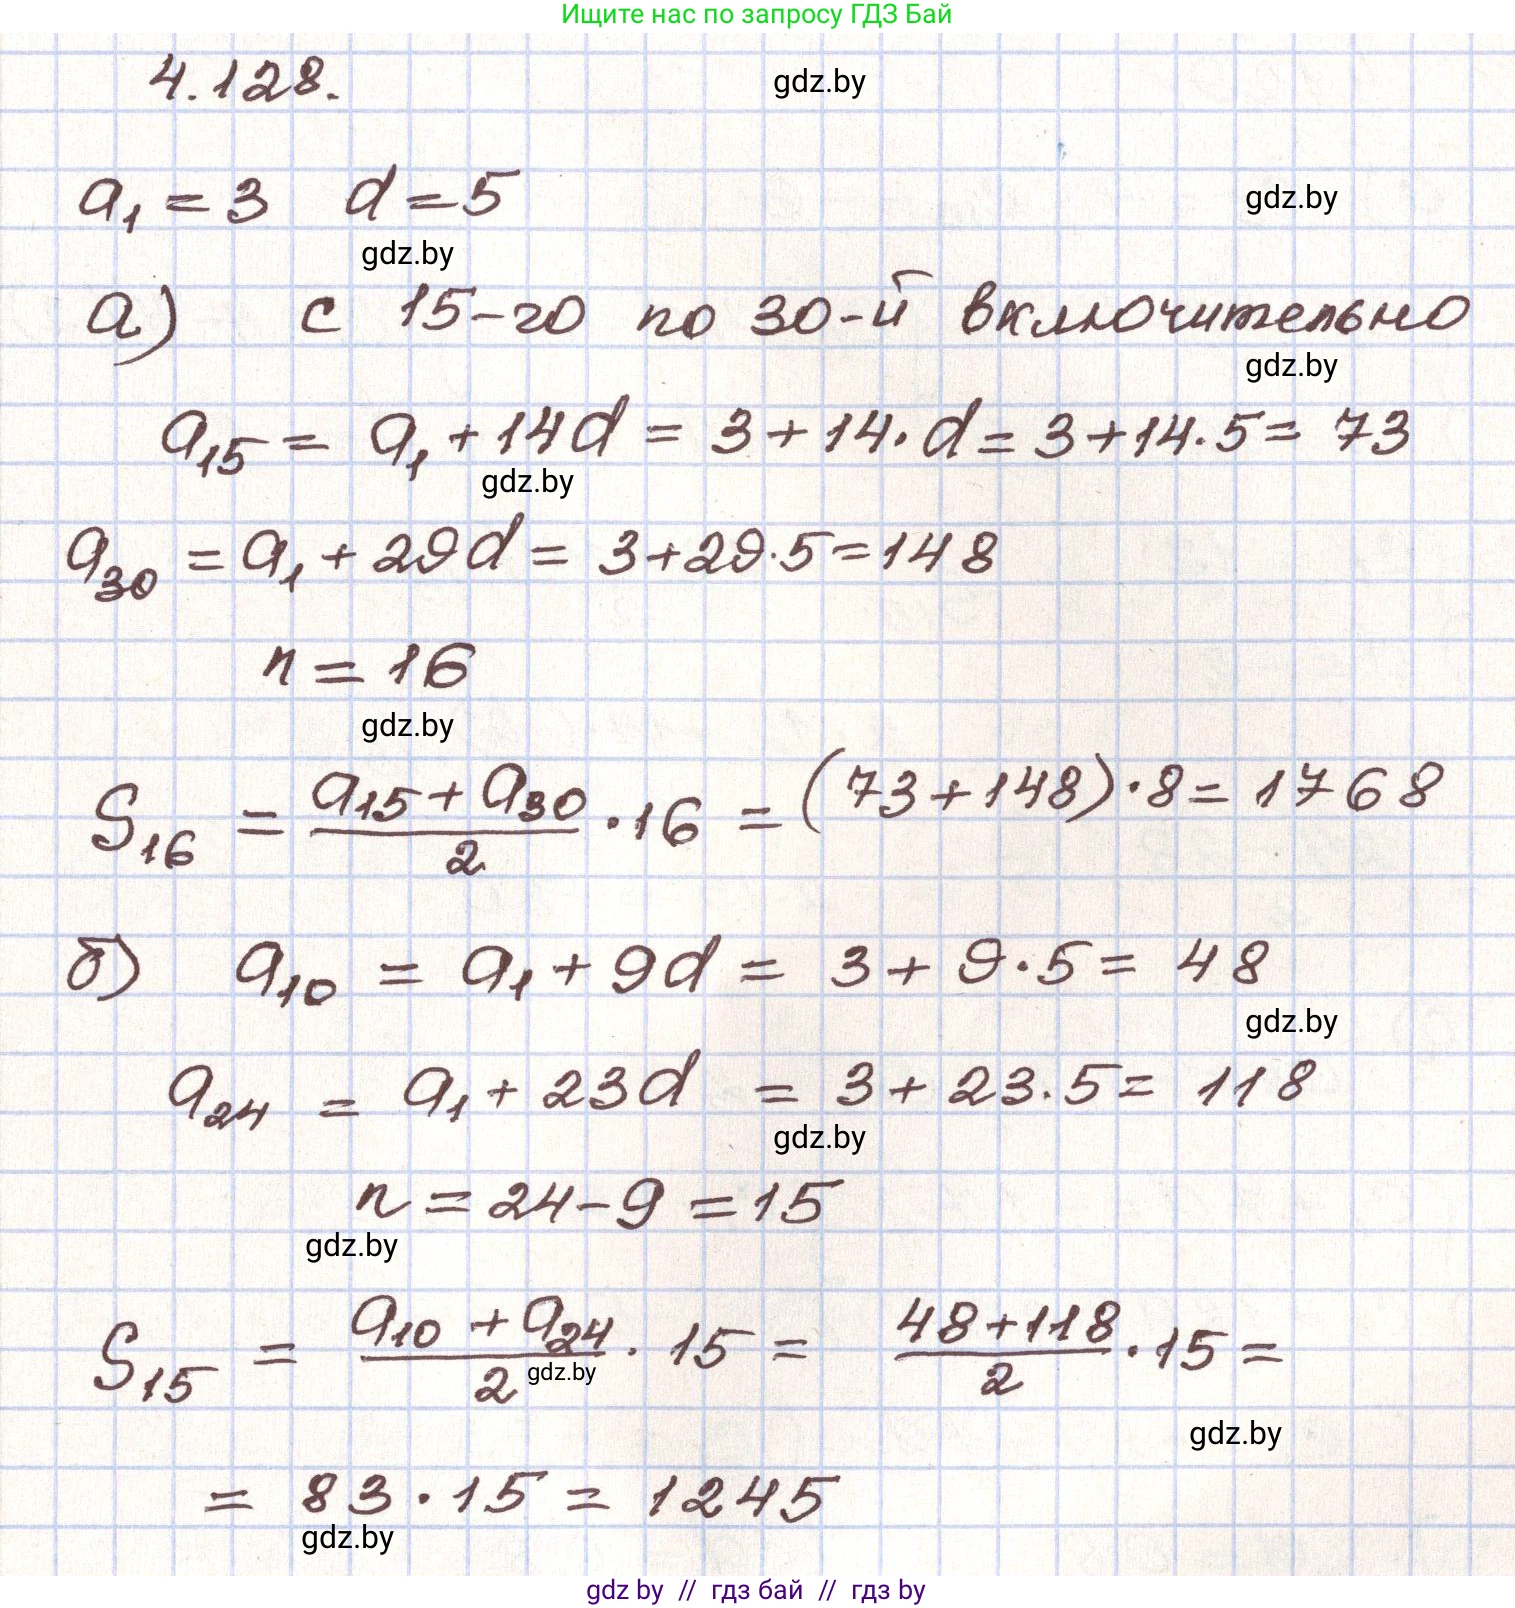 Ищите нас по запросу ГДЗ Бай
4.128.
gdz.by
a₁ = 3   d = 5
gdz.by
gdz.by
а) с 15-го по 30-й включительно
gdz.by
a₁₅ = a₁ + 14d = 3 + 14·d = 3 + 14·5 = 73
gdz.by
a₃₀ = a₁ + 29d = 3 + 29·5 = 148
n = 16
gdz.by
S₁₆ = (a₁₅ + a₃₀)/2 · 16 = (73 + 148)·8 = 1768
б) a₁₀ = a₁ + 9d = 3 + 9·5 = 48
gdz.by
a₂₄ = a₁ + 23d = 3 + 23·5 = 118
gdz.by
n = 24 - 9 = 15
gdz.by
S₁₅ = (a₁₀ + a₂₄)/2 · 15 = (48 + 118)/2 · 15 =
gdz.by
gdz.by
= 83·15 = 1245
gdz.by
gdz by // гдз бай // гдз by